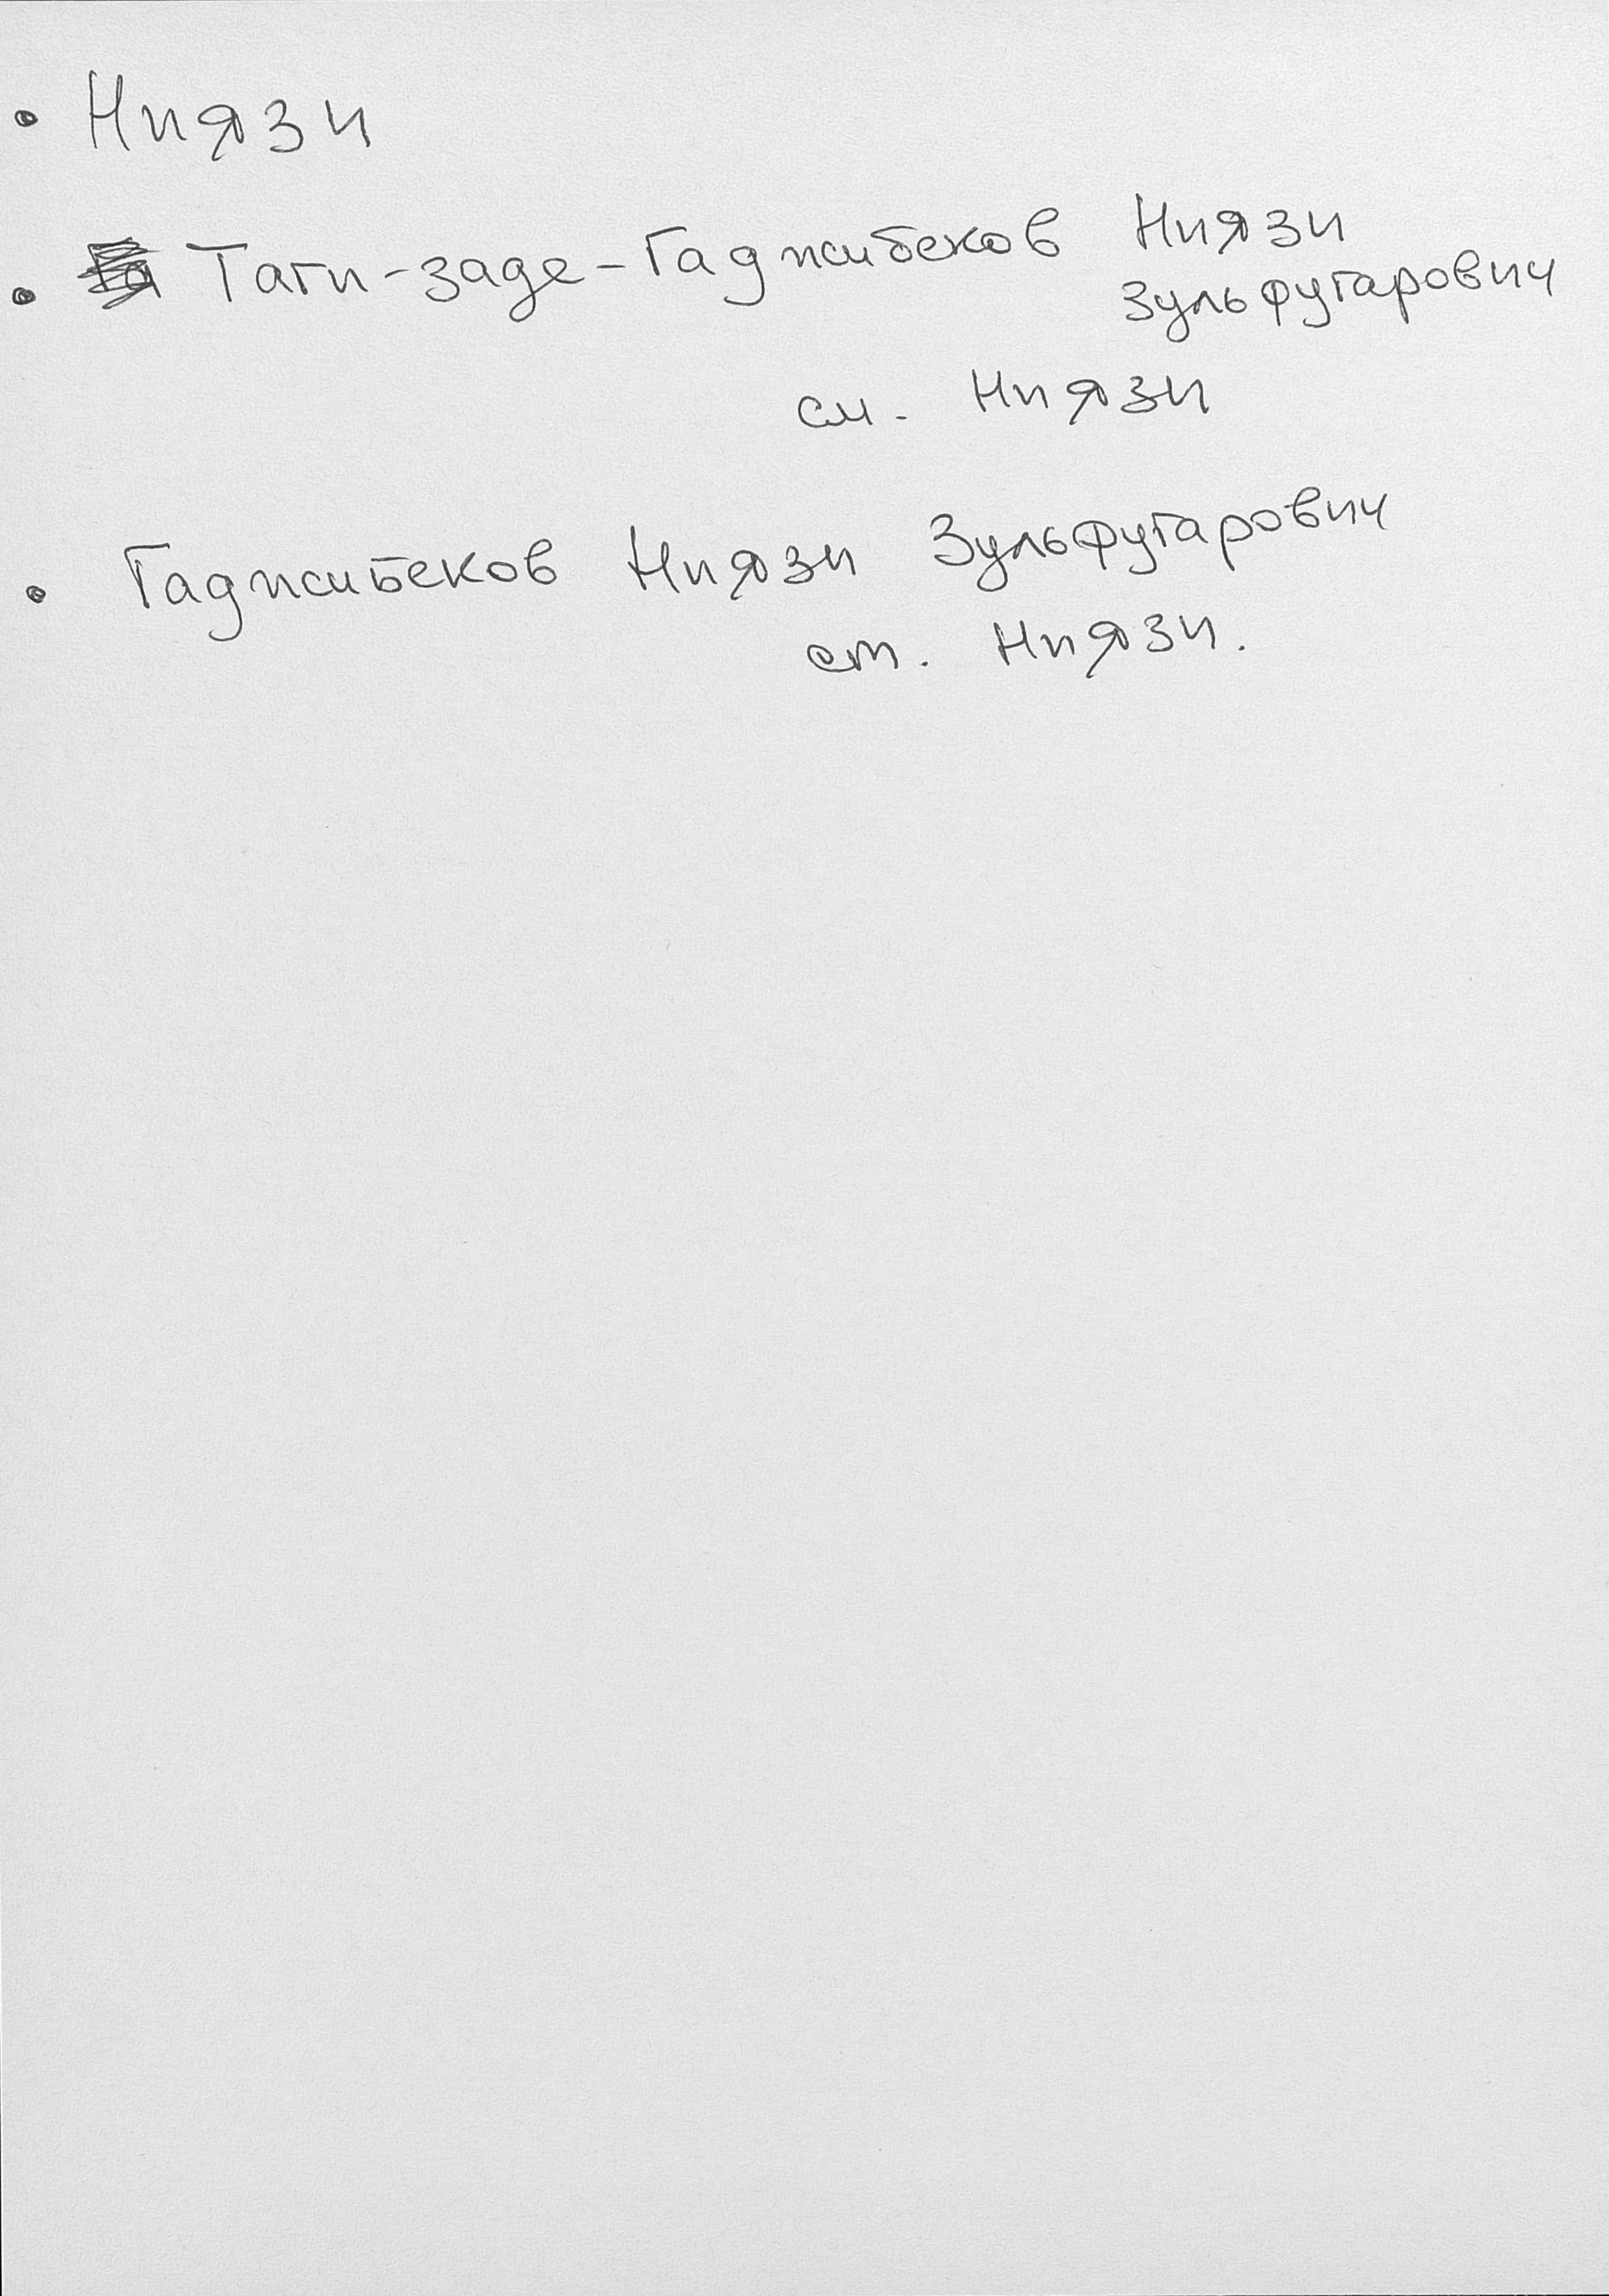 • Ниязи
• Таги-заде-Гаджибеков Ниязи
Зульфугарович
см. Ниязи
• Гаджибеков Ниязи Зульфугарович
ст. Ниязи.